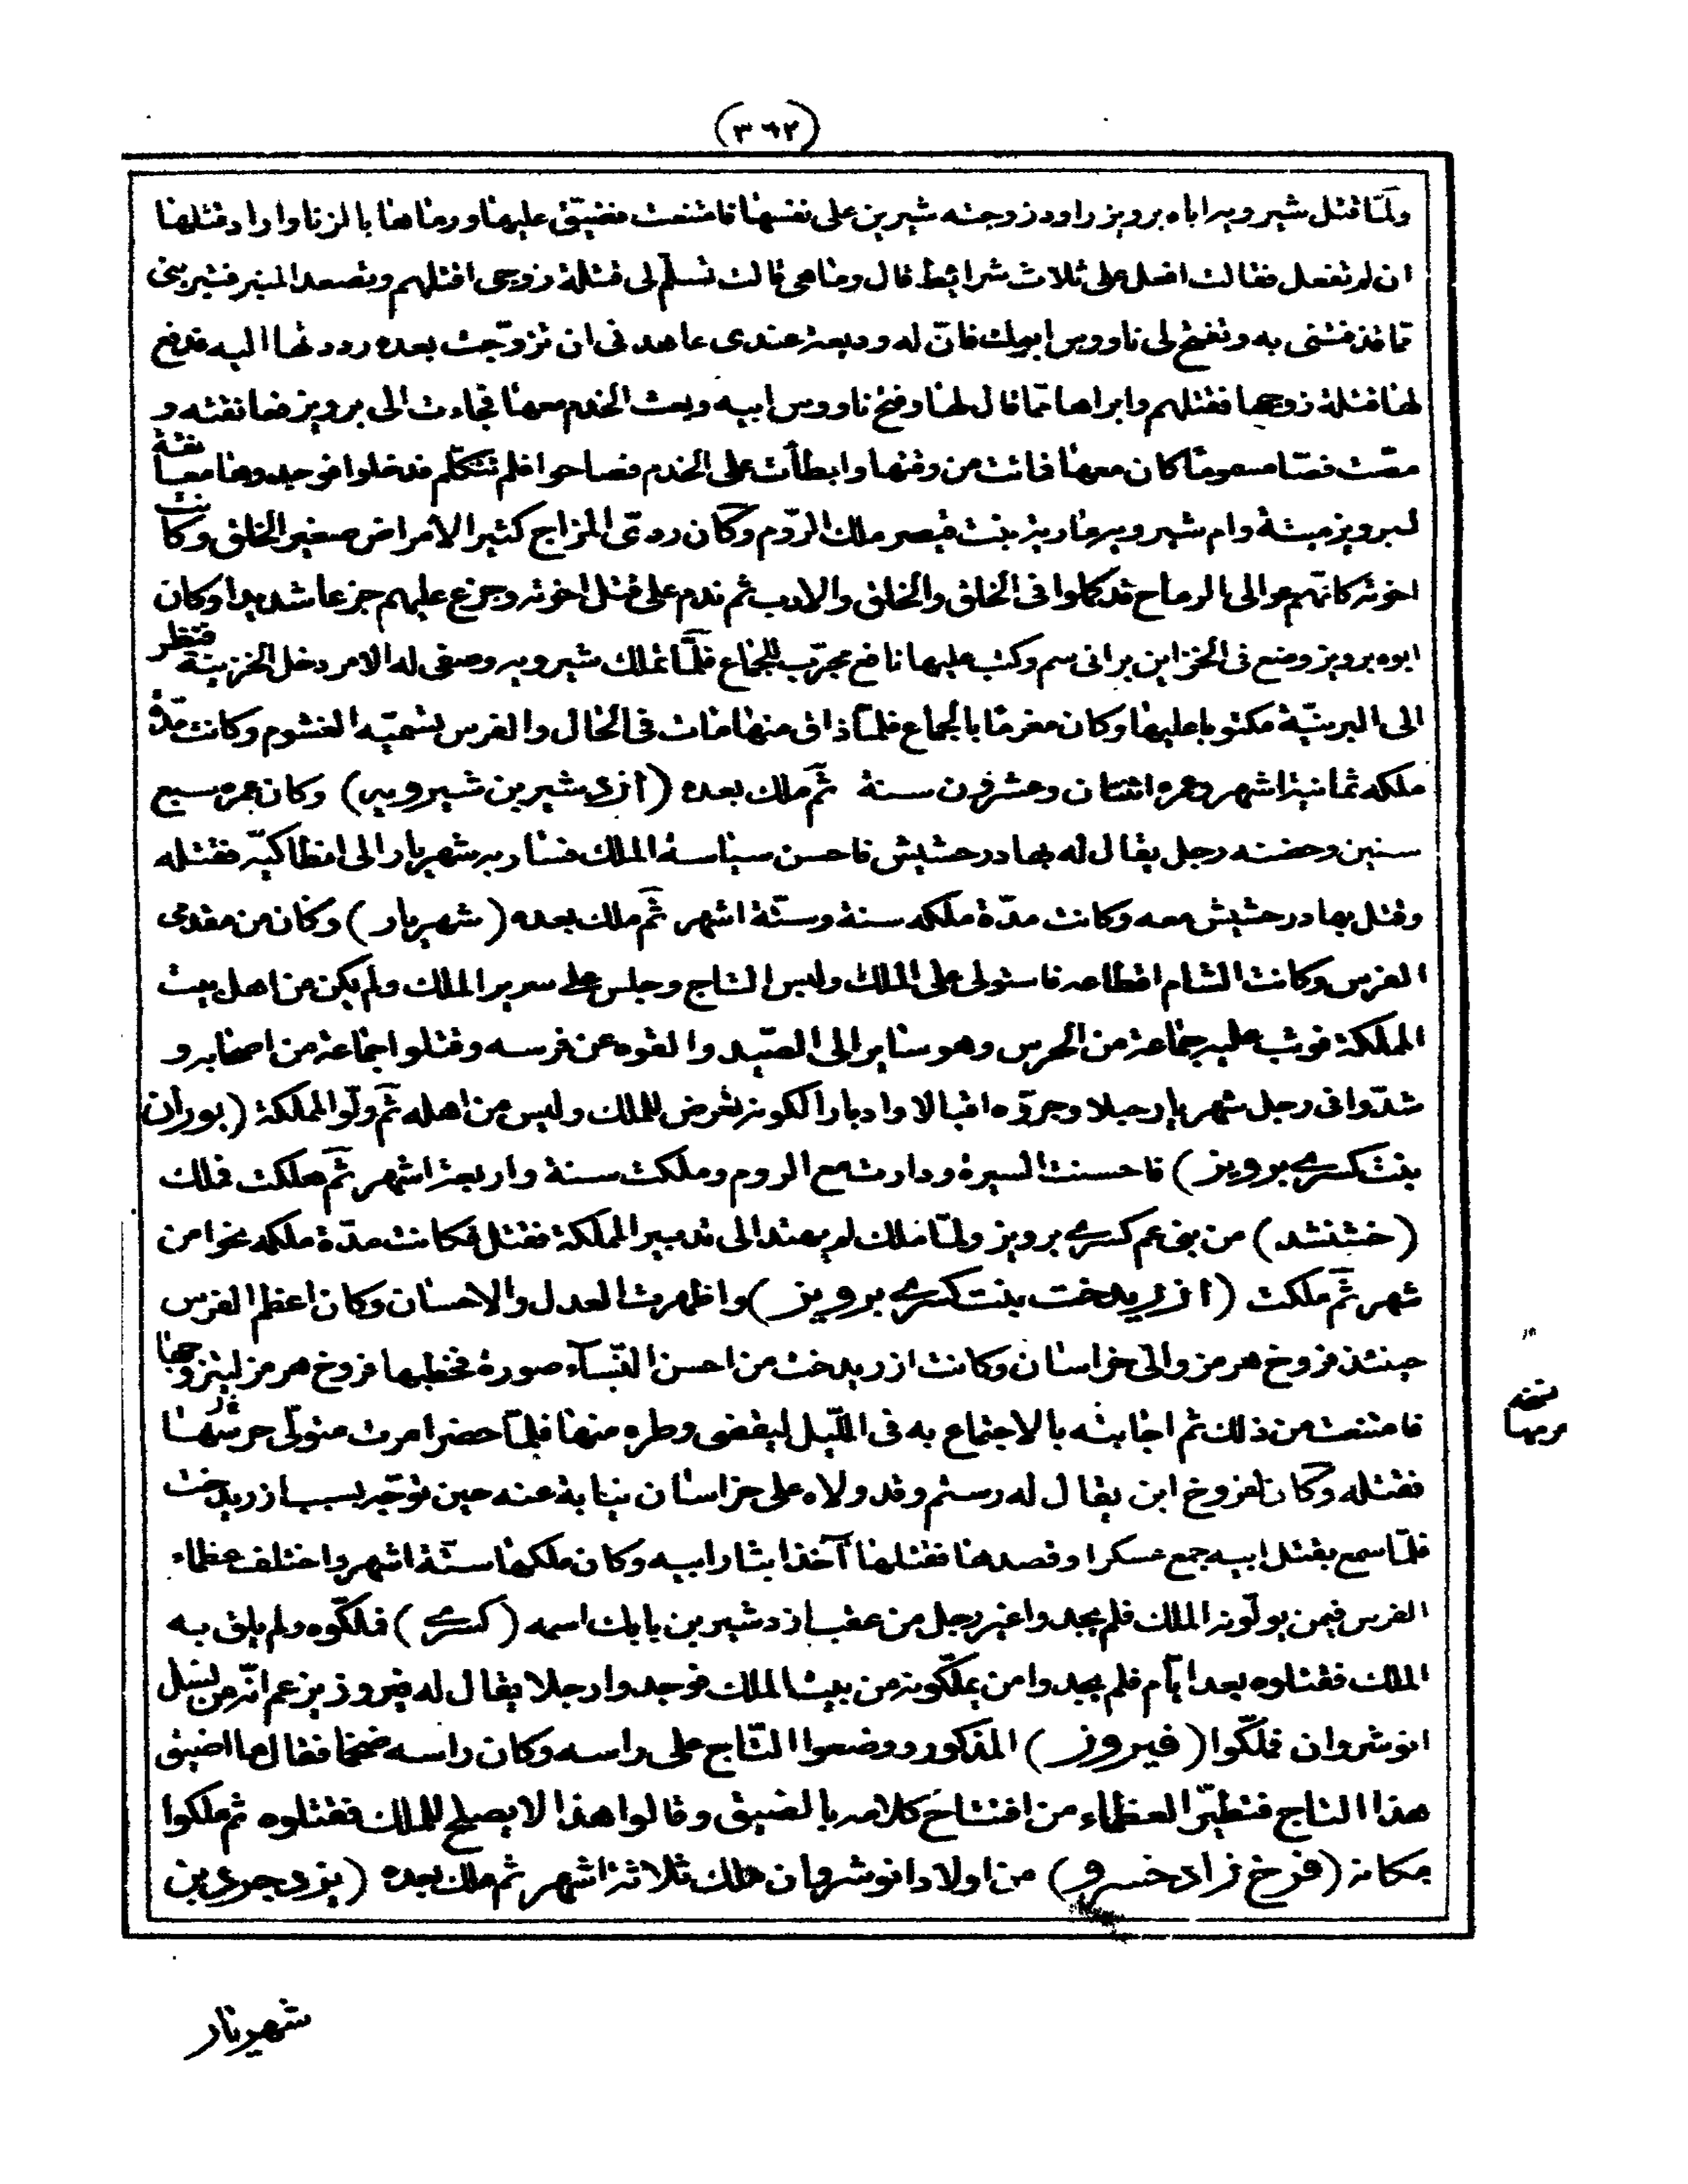 (٣٦٢)
ولمّا قتل شيرويه اباه برويز راود زوجته شيرين على نفسها فامتنعت فضيّق عليها ورماها بالزنا واراد قتلها
ان لم تفعل فقالت افعل على ثلاث شرايط قال وما هي قالت تسلّم لي قتلة زوجي اقتلهم وتصعد المنبر فتبريني
ممّا قذفتني به وتفتح لي ناووس ابيك فانّ له وديعة عندي عاهدني ان تزوّجت بعده رددتها اليه فدفع
لها قتلة زوجها فقتلهم وابراها ممّا قال لها وفتح ناووس ابيه وبعث الخدم معها فجاءت الى برويز فعانقته و
مصّت فصّا مسموما كان معها فماتت من وقتها وابطأت على الخدم فصاحوا فلم تتكلّم فدخلوا فوجدوها معانقة
لبرويز ميتة وام شيرويه مارية بنت قيصر ملك الرّوم وكان رديّ المزاج كثير الامراض صغير الخلق وكانت
اخوته كانّهم عوالي الرماح قد كملوا في الخلق والخلق والادب ثم ندم على قتل اخوته وجزع عليهم جزعا شديدا وكان
ابوه برويز وضع في الخزاين براني سم وكتب عليها نافع مجرّب للجماع فلمّا تملك شيرويه وصفى له الامر دخل الخزينة فنظر
الى البرنيّة مكتوبا عليها وكان مغرما بالجماع فلمّا ذاق منها مات في الحال والفرس تسمّيه الغشوم وكانت مدّة
ملكه ثمانية اشهر وعمره اثنتان وعشرون سنة ثمّ ملك بعده (ازدشير بن شيرويه) وكان عمره سبع
سنين وحضنه رجل يقال له بهادر حشيش فاحسن سياسة الملك فسار به شهريار الى انطاكيّة فقتله
وقتل بهادر حشيش معه وكانت مدّة ملكه سنة وستّة اشهر ثمّ ملك بعده (شهريار) وكان من مقدمي
الفرس وكانت الشام اقطاعه فاستولى على الملك ولبس التاج وجلس على سرير الملك ولم يكن من اهل بيت
المملكة فوثب عليه جماعة من الحرس وهو ساير الى الصّيد والقوه عن فرسه وقتلوا جماعة من اصحابه و
شدّوا في رجل شهريار حبلا وجرّوه اقبالا وادبارا لكونه تعرض للملك وليس من اهله ثمّ ولّوا المملكة (بوران
بنت كسرى برويز) فاحسنت السيرة ودارت مع الروم وملكت سنة واربعة اشهر ثمّ هلكت فملك
(خشنشد) من بني عم كسرى برويز ولمّا ملك لم يهتد الى تدبير المملكة فقتل فكانت مدّة ملكه نحوا من
شهر ثمّ ملكت (ازريدخت بنت كسرى برويز) واظهرت العدل والاحسان وكان اعظم الفرس
حينئذ فزوخ هرمز والي خراسان وكانت ازريدخت من احسن النّساء صورة فخطبها فزوخ هرمز ليتزوجها
فامتنعت من ذلك ثم اجابته بالاجتماع به في اللّيل ليقضي وطره منها فلمّا حضر امرت متولّي حرسها
فقتله وكان لفزوخ ابن يقال له رستم وقد ولاه على خراسان نيابة عنه حين توجّه بسبب ازريدخت
فلمّا سمع بقتل ابيه جمع عسكرا وقصدها فقتلها آخذا بثار ابيه وكان ملكها ستّة اشهر واختلف عظماء
الفرس فيمن يولّونه الملك فلم يجدوا غير رجل من عقب ازدشير بن بابك اسمه (كسرى) فملكوه ولم يلق به
الملك فقتلوه بعد ايّام فلم يجدوا من يملّكونه من بيت الملك فوجدوا رجلا يقال له فيروز يزعم انّه من نسل
انوشروان فملّكوا (فيروز) المذكور ووضعوا التّاج على راسه وكان راسه ضخما فقال ما اضيق
هذا التاج فتطيّر العظماء من افتتاح كلامه بالضيق وقالوا هذا لا يصلح للملك فقتلوه ثم ملكوا
مكانه (فرخ زاد خسرو) من اولاد انوشروان ملك ثلاثة اشهر ثم ملك بعده (يزدجرد بن
شهريار
نسخه